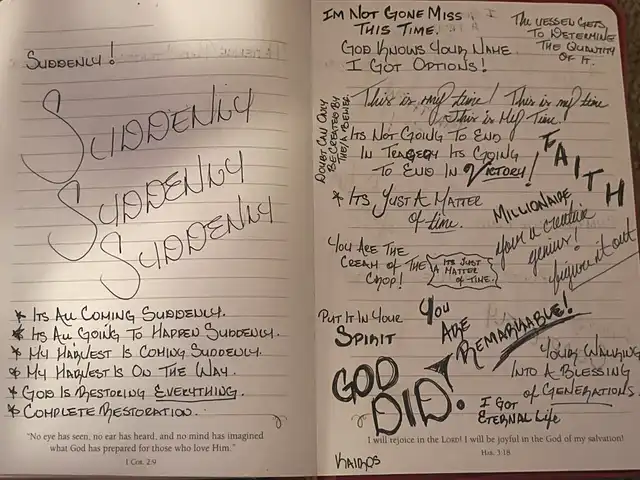 SUDDENLY!
SUDDENLY
SUDDENLY
SUDDENLY
* ITS ALL COMING SUDDENLY.
* ITS ALL GOING TO HAPPEN SUDDENLY.
* MY HARVEST IS COMING SUDDENLY.
* MY HARVEST IS ON THE WAY.
* GOD IS RESTORING EVERYTHING.
* COMPLETE RESTORATION.
"No eye has seen, no ear has heard, and no mind has imagined
what God has prepared for those who love Him."
1 COR. 2:9
IM NOT GONE MISS
THIS TIME.
GOD KNOWS YOUR NAME
I GOT OPTIONS!
THE VESSEL GETS
TO DETERMINE
THE QUANTITY
OF IT.
This is my time! This is my time
This is My Time.
DOUBT CAN ONLY
BE CREATED BY
THE/A BELIEF.
ITS NOT GOING TO END
IN TRAGEDY ITS GOING
TO END IN VICTORY!
FAITH
* ITS JUST A MATTER
OF time.
MILLIONAIRE
your a creative
genius!
figure it out
YOU ARE THE
CREAM OF THE
CROP!
ITS JUST
A MATTER
OF TIME.
PUT IT IN YOUR
SPIRIT
YOU
ARE
REMARKABLE!
GOD
DID!
YOUR WALKING
INTO A BLESSING
OF GENERATIONS.
I GOT
ETERNAL LIFE
I will rejoice in the LORD! I will be joyful in the God of my salvation!
HAB. 3:18
KAIROS